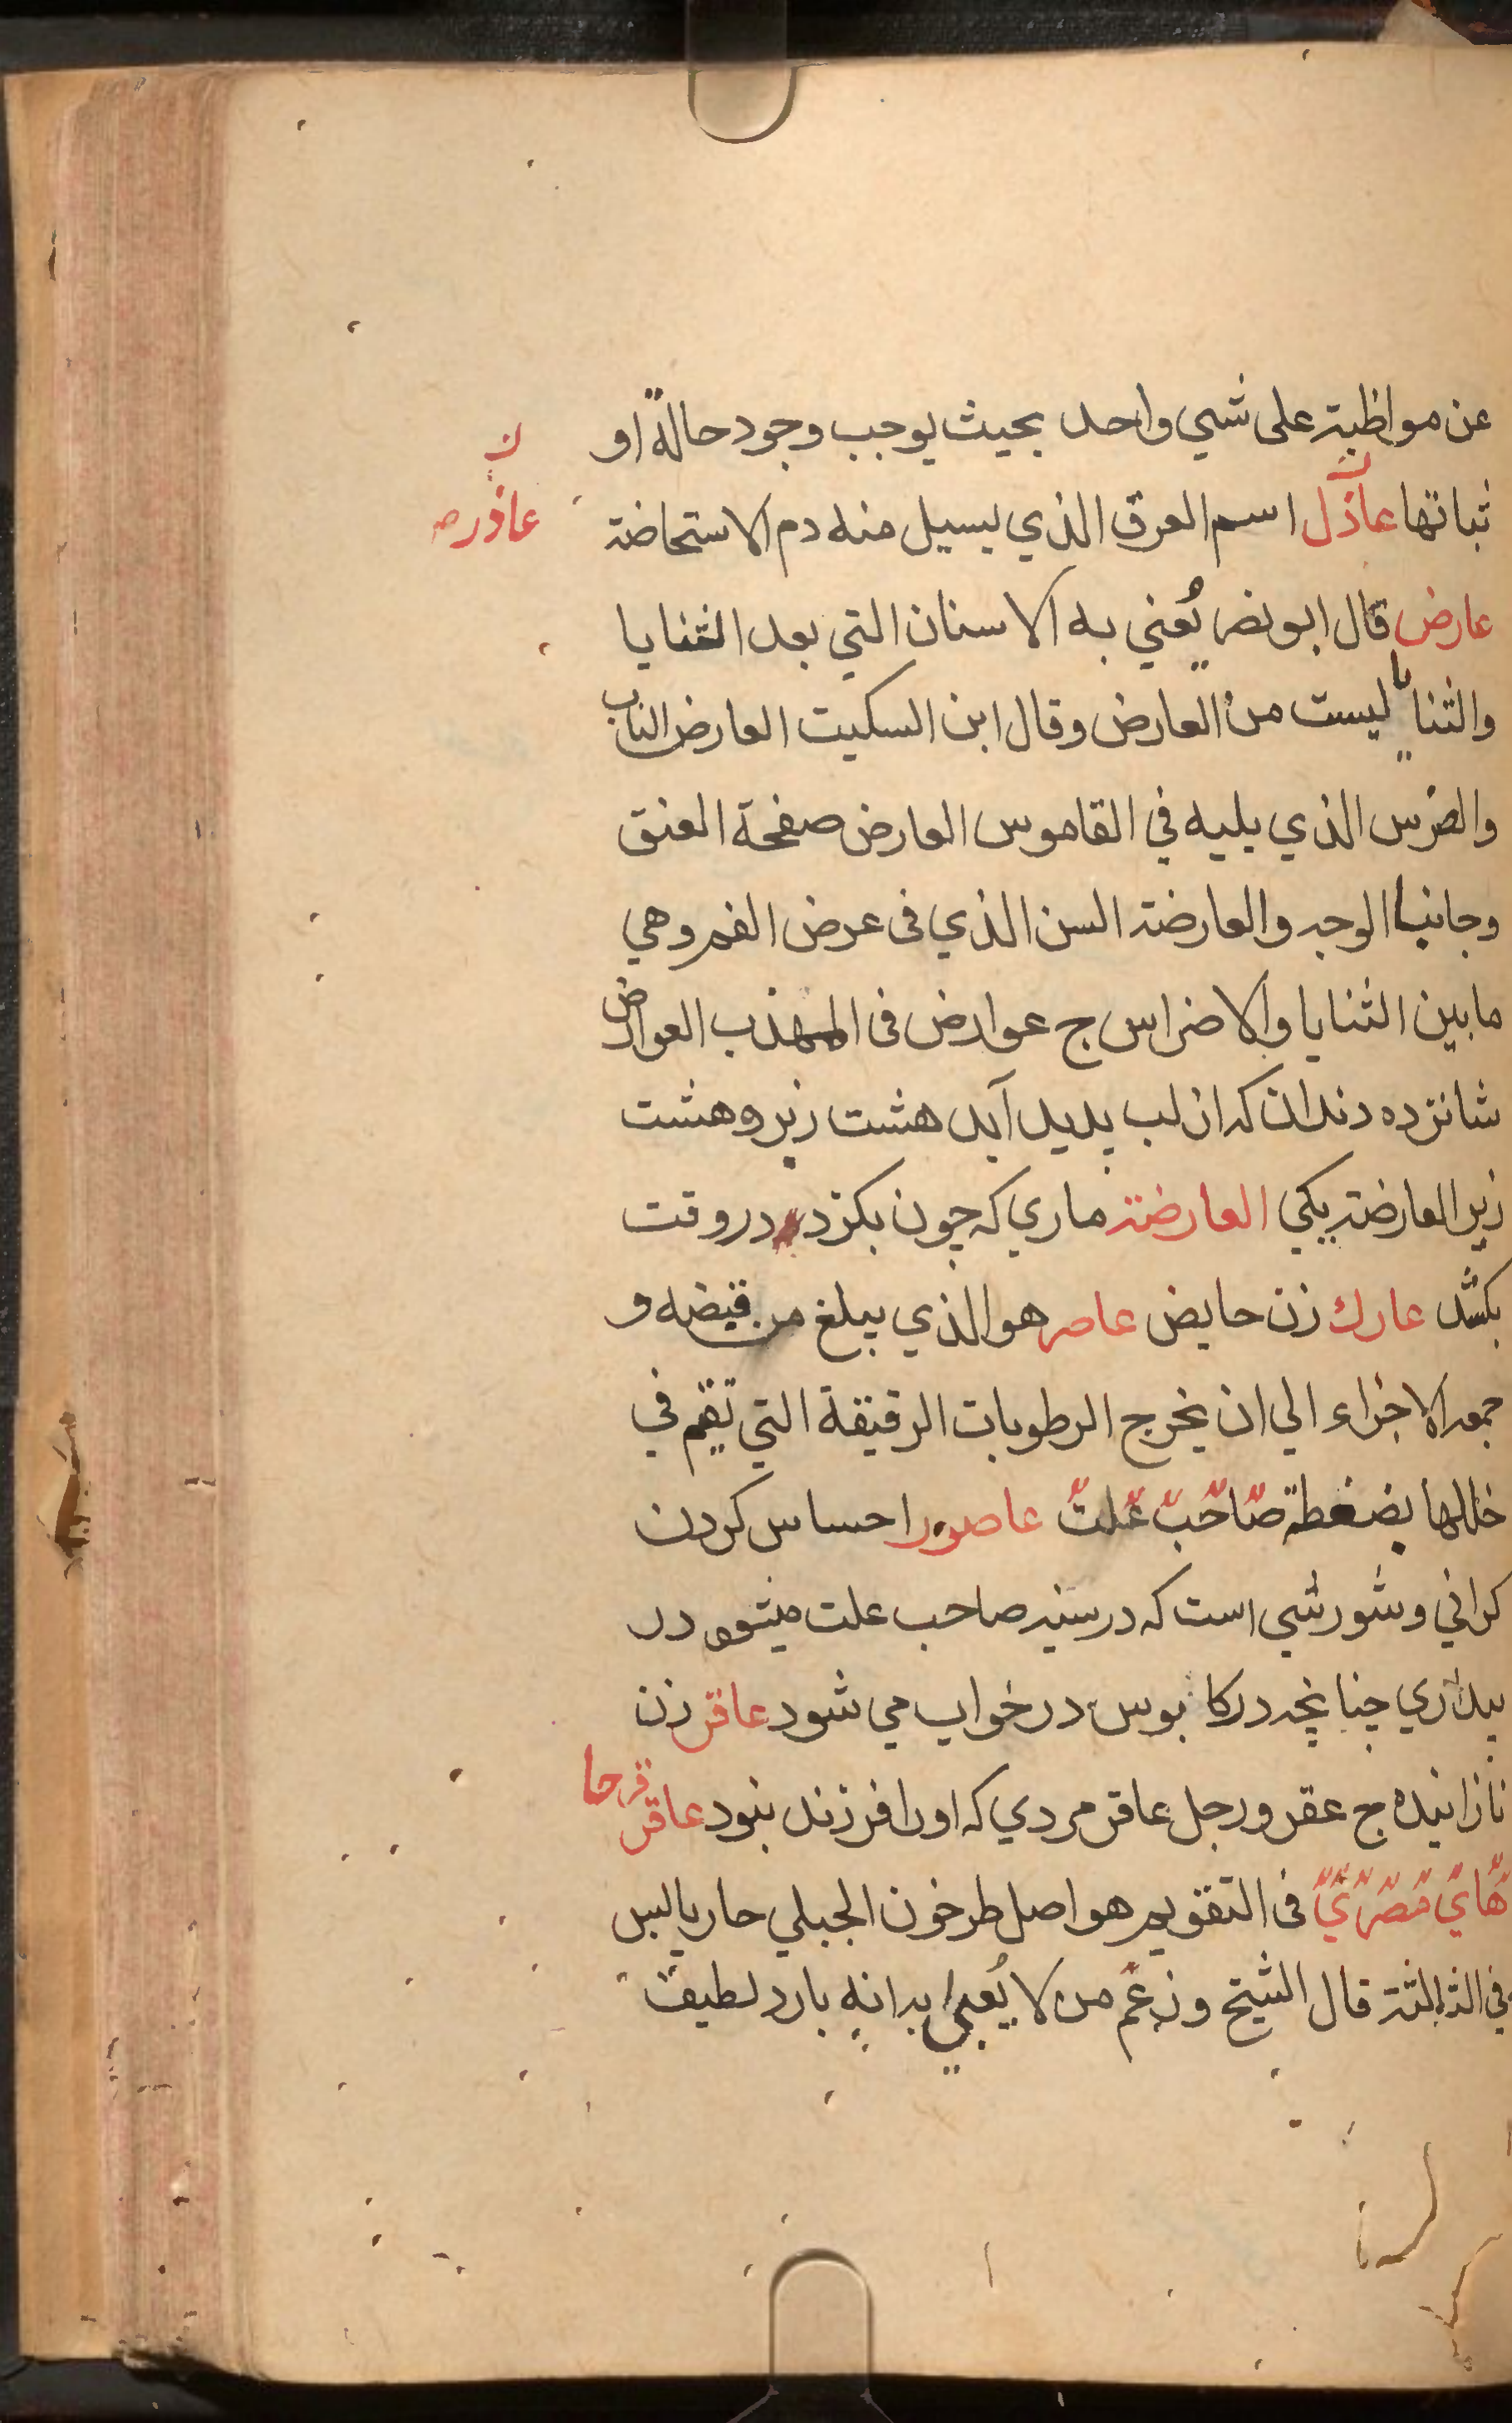 عن مواظبة على شيي واحد بحيث يوجب وجود حالة او
ثباتها عاذل اسم العرق الذي يسيل منه دم الاستحاضة
ن
عاذر صح
عارض قال ابو نصر يُعني به الاسنان التي بعد الثنايا
والثنايا ليست من العارض وقال ابن السكيت العارض الناب
والضرس الذي يليه في القاموس العارض صفحة العنق
وجانبا الوجه والعارضة السن الذي فى عرض الفم وهي
ما بين الثنايا والاضراس ج عوارض فى المهذب العوارض
شانزده دندان كه از لب پديد آيد هشت زبر و هشت
زير العارضة يكي العارضة ماري كه چون بكزد در وقت
بكشد عارك زن حايض عاصر هو الذي يبلغ من قبضه و
جمعه الاجزاء الي ان يخرج الرطوبات الرقيقة التي تقيم في
خللها بضغطة صاحب علت عاصور احساس كردن
كراني و شورشي است كه در سينه صاحب علت ميشود در
بيداري چنانچه در كابوس در خواب مي شود عاقر زن
نازانيده ج عقر ورجل عاقر مردي كه اورا فرزند نبود عاقر قرحا
هاي مصري فى التقويم هو اصل طرخون الجبلي حار يابس
في الثالثة قال الشيخ وزعم من لا يُعبي به انه بارد لطيف